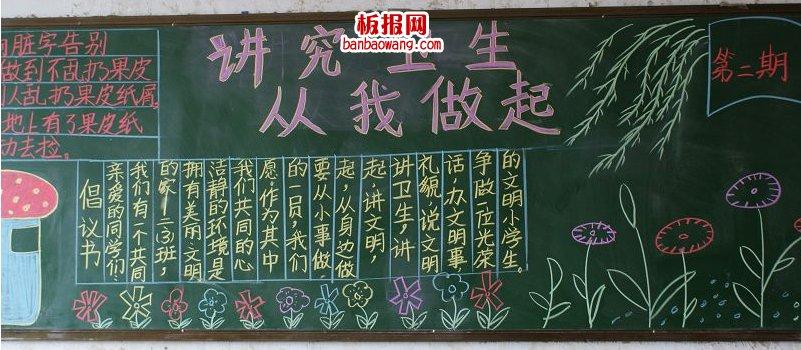 板报网
banbaowang.com
讲究卫生
从我做起
第二期
脏字告别
做到不乱扔果皮
乱扔果皮纸屑
地上有了果皮纸
动去捡。
倡议书
亲爱的同学们:
我们有一个共同
的家!二(3)班,
拥有美丽、文明
洁静的环境是
我们共同的心
愿,作为其中
的一员,我们
要从小事做
起,从身边做
起,讲文明,
讲卫生,讲
礼貌,说文明
话,办文明事,
争做一位光荣
的文明小学生。